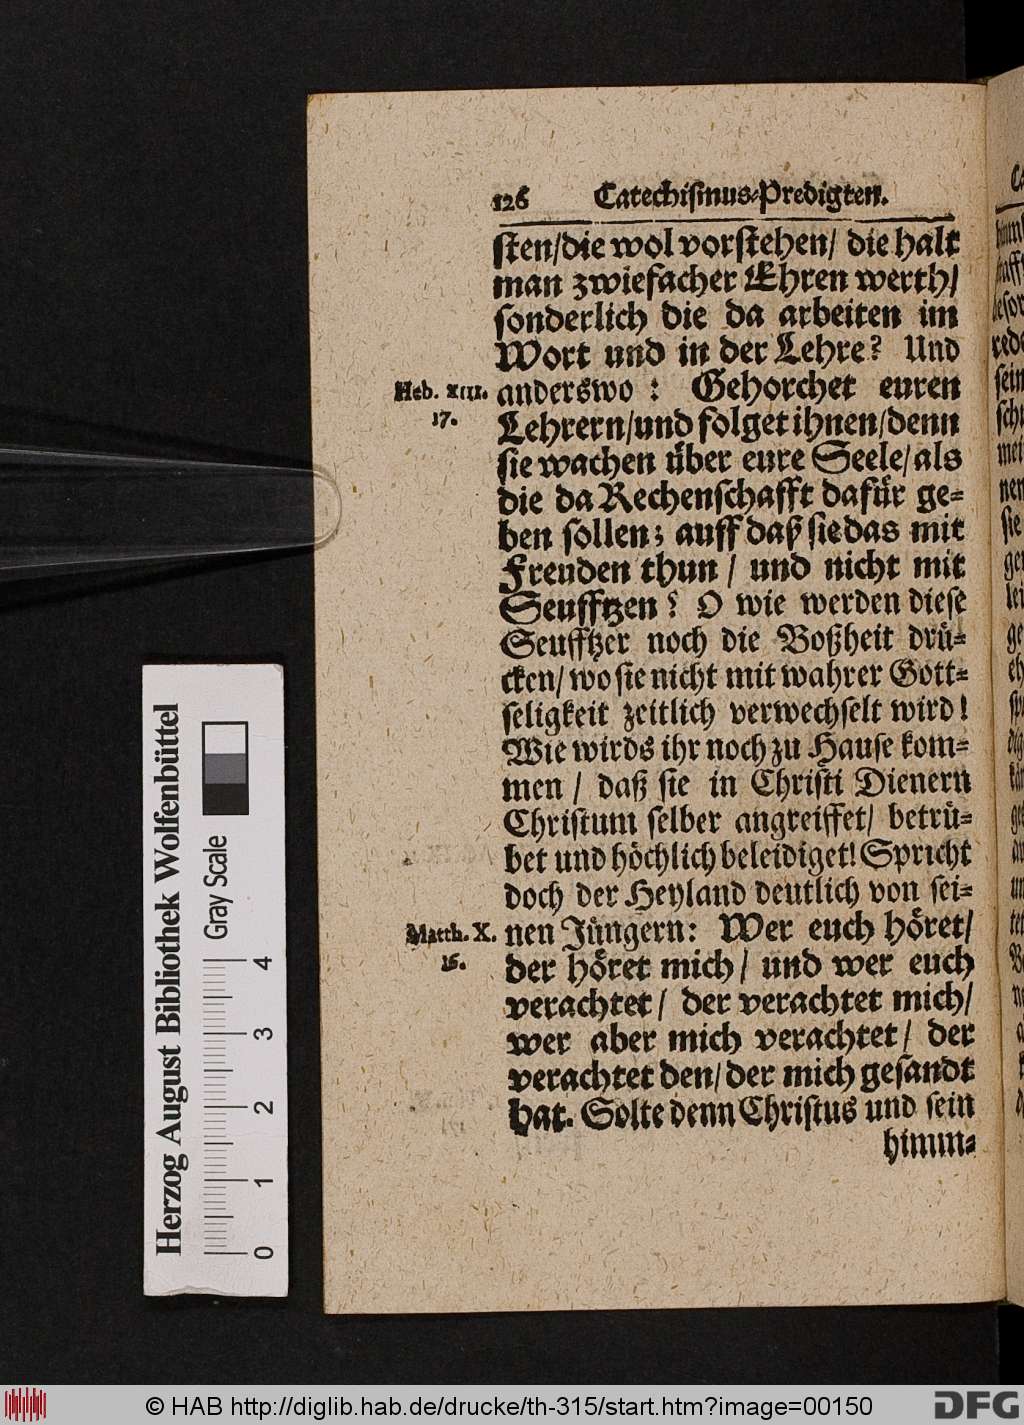 126 Catechiſmus-Predigten.
ſten/die wol vorſtehen/ die halt
man zwiefacher Ehren werth/
ſonderlich die da arbeiten im
Wort und in der Lehre? Und
Heb. XIII. 17.
anderswo: Gehorchet euren
Lehrern/und folget ihnen/denn
ſie wachen über eure Seele/als
die da Rechenſchafft dafür ge-
ben ſollen; auff daß ſie das mit
Freuden thun / und nicht mit
Seufftzen? O wie werden dieſe
Seufftzer noch die Boßheit drü-
cken/ wo ſie nicht mit wahrer Gott-
ſeligkeit zeitlich verwechſelt wird!
Wie wirds ihr noch zu Hauſe kom-
men / daß ſie in Chriſti Dienern
Chriſtum ſelber angreiffet/ betrü-
bet und höchlich beleidiget! Spricht
doch der Heyland deutlich von ſei-
Matth. X. 16.
nen Jüngern: Wer euch höret/
der höret mich / und wer euch
verachtet / der verachtet mich/
wer aber mich verachtet / der
verachtet den/der mich geſandt
hat. Solte denn Chriſtus und ſein
himm-
Herzog August Bibliothek Wolfenbüttel
Gray Scale
0 1 2 3 4
© HAB http://diglib.hab.de/drucke/th-315/start.htm?image=00150
DFG